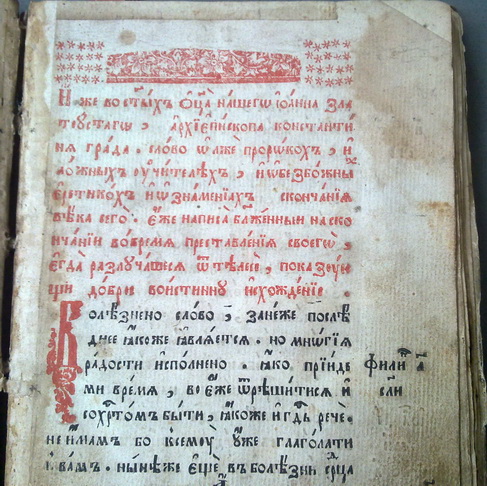 Иже во ст҃ыхъ ѻц҃а нашегѡ іѡанна зла
тоустагѡ, а҆рхїепⷭ҇копа константи
нѧ града. слово ѡ҆ лже прⷪ҇роцѣхъ, и҆
ложныхъ ᲂу҆чителѣхъ, и҆ ѡ҆ безбожны
є҆ретикохъ и҆ ѡ҆ знаменїахъ скончанїѧ
вѣка сего. є҆же написа блаженныи на ско
нчанїи во времѧ преставленїѧ своегѡ,
є҆гда разлꙋчашесѧ ѿ тѣлесе, показꙋѧ
добри воистиннꙋ и҆схожденїе.
Болѣзнено слово, занеже послѣ
днее ꙗ҆коже ꙗ҆влѧетсѧ. но многїѧ
радости и҆сполнено. ꙗ҆ко прїиде Филип
ми времѧ, во є҆же ѿрѣшитисѧ и҆
со хртⷭ҇омъ быти, ꙗ҆коже и҆ гд҇ь рече.
не и҆мамъ бо к семꙋ ᲂу҆же глаголати
с вамъ. нынѣже є҆ще въ болѣзни срⷣца